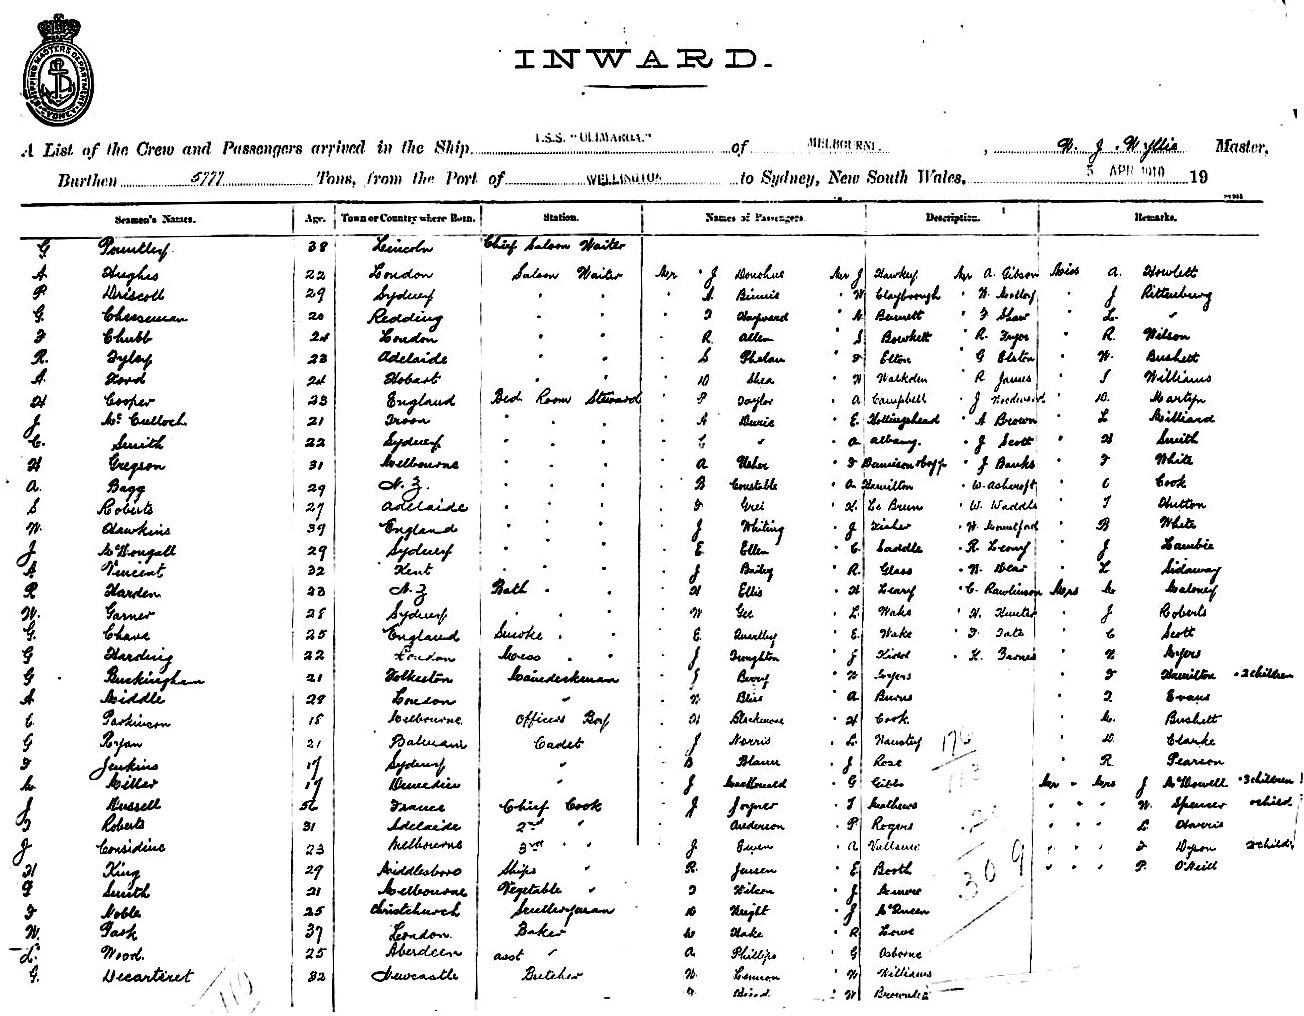 INWARD.
SHIPPING MASTERS DEPARTMENT SYDNEY
A List of the Crew and Passengers arrived in the Ship T.S.S. "ULIMAROA." of MELBOURNE, W. J. Wyllie Master,
Burthen 5777 Tons, from the Port of WELLINGTON to Sydney, New South Wales, 5 APR 1910 19
Seamen's Names. Age. Town or Country where Born. Station. Names of Passengers. Description. Remarks.
G 38 Lincoln Chief Saloon Waiter
A. Hughes 22 London Saloon Waiter Mr J Donohue Mr J Hawkey Mr A. Gibson Miss A. Howlett
P. Driscoll 29 Sydney " " " A. Binnie " W Clayborough " W. Molloy " J Rittenburg
G. Cheeseman 20 Redding " " " Hayward " Bennett " F Shaw " L. "
F Chubb 24 London " " " R. Allen " S Bowkett " R. Fryer " R. Wilson
R. 23 Adelaide " " " S Phelan " F Elton " G Elston " W. Bushett
A. Ford 24 Hobart " " " D Shea " W Walkden " R James " S Williams
H Cooper 33 England Bed Room Steward " P Taylor " A Campbell " J Woodward " D. Martyn
J McCulloch 21 Troon " " " " A " E. Hollingshead " A Brown " L Milliard
C. Smith 22 Sydney " " " " C " " A Albany. " J Scott " H Smith
H Gregson 31 Melbourne " " " " A Usher " F " J Banks " F White
A. Bagg 29 N.Z. " " " " B Constable " A Hamilton " W. Ashcroft " C Cook
S Roberts 27 Adelaide " " " " F Grei " H. Le Brun " W. Waddle " T Hutton
W. Hawkins 39 England " " " " J Whiting " J Fisher " W. Mountford " B White
J McDougall 29 Sydney " " " " E Ellen " C. Saddle " R. Leony " J Lambie
A Vincent 32 Kent " " " " J Bailey " R. Glass " W. Wear " L Sidaway
R Harden 23 N.Z Bath " " " H Ellis " H Leary " C. Rawlinson Mrs M. Maloney
W. Garner 28 Sydney " " " W Gee " L. Wake " H. Hunter " J Roberts
G. Chave 25 England Smoke " " " E. " E. Wake " F. Tate " C Scott
G Harding 22 London Mess " " " J Troughton " J Kidd " H. Barnes " H Myers
G Buckingham 21 Folkeston " J " Myers " F Hamilton " 2 children
A Middle 28 London " " W. Bliss " A Burns " T. Evans
C Parkinson 18 Melbourne Officers Boy " H Blackmore " H Cook " M. Bushett
G Ryan 21 Balmain Cadet " J Norris " L. " H. Clarke
F Jenkins 17 Sydney " " B " J Rose " R Pearson
M. Miller 17 Dunedin " " J MacDonald " G Gibbs Mr " Mrs J McDowell " 3 children
J Russell 56 France Chief Cook " J Joyner " T Mathews " " " W. Spencer " child
F Roberts 31 Adelaide 2nd " " Anderson " P Rogers " " " L Harris
J Considine 23 Melbourne 3rd " " J Ewen " A Vallance " " " F Dyson 2 child
H King 29 Middlesboro Ships " " R. Jensen " E Booth " " " P. O'Neill
F Smith 21 Melbourne Vegetable " " F Wilson " J
F Noble 25 Christchurch Sculleryman " D Wright " J McQueen
W. Pask 37 London. Baker " W Hake " R Lowe
L. Wood. 25 Aberdeen asst " " A Phillips " G Osborne
G. Decarteret 32 Newcastle Butcher " W. Lennon " W Williams
" Wood. " W Brownlee
176
309
110